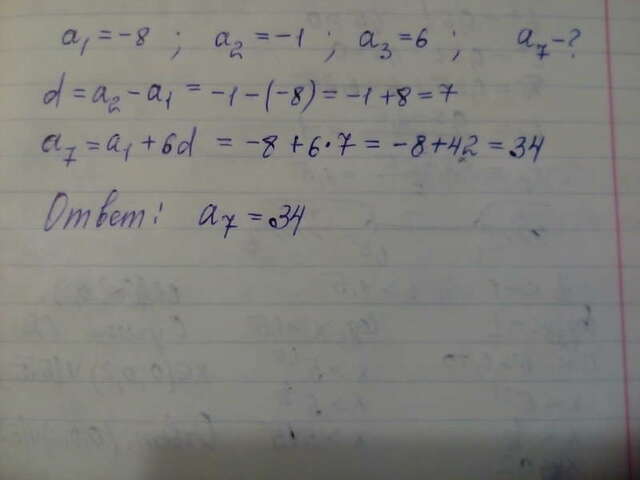 a₁ = -8 ; a₂ = -1 ; a₃ = 6 ; a₇ - ?
d = a₂ - a₁ = -1 - (-8) = -1 + 8 = 7
a₇ = a₁ + 6d = -8 + 6·7 = -8 + 42 = 34
Ответ: a₇ = 34